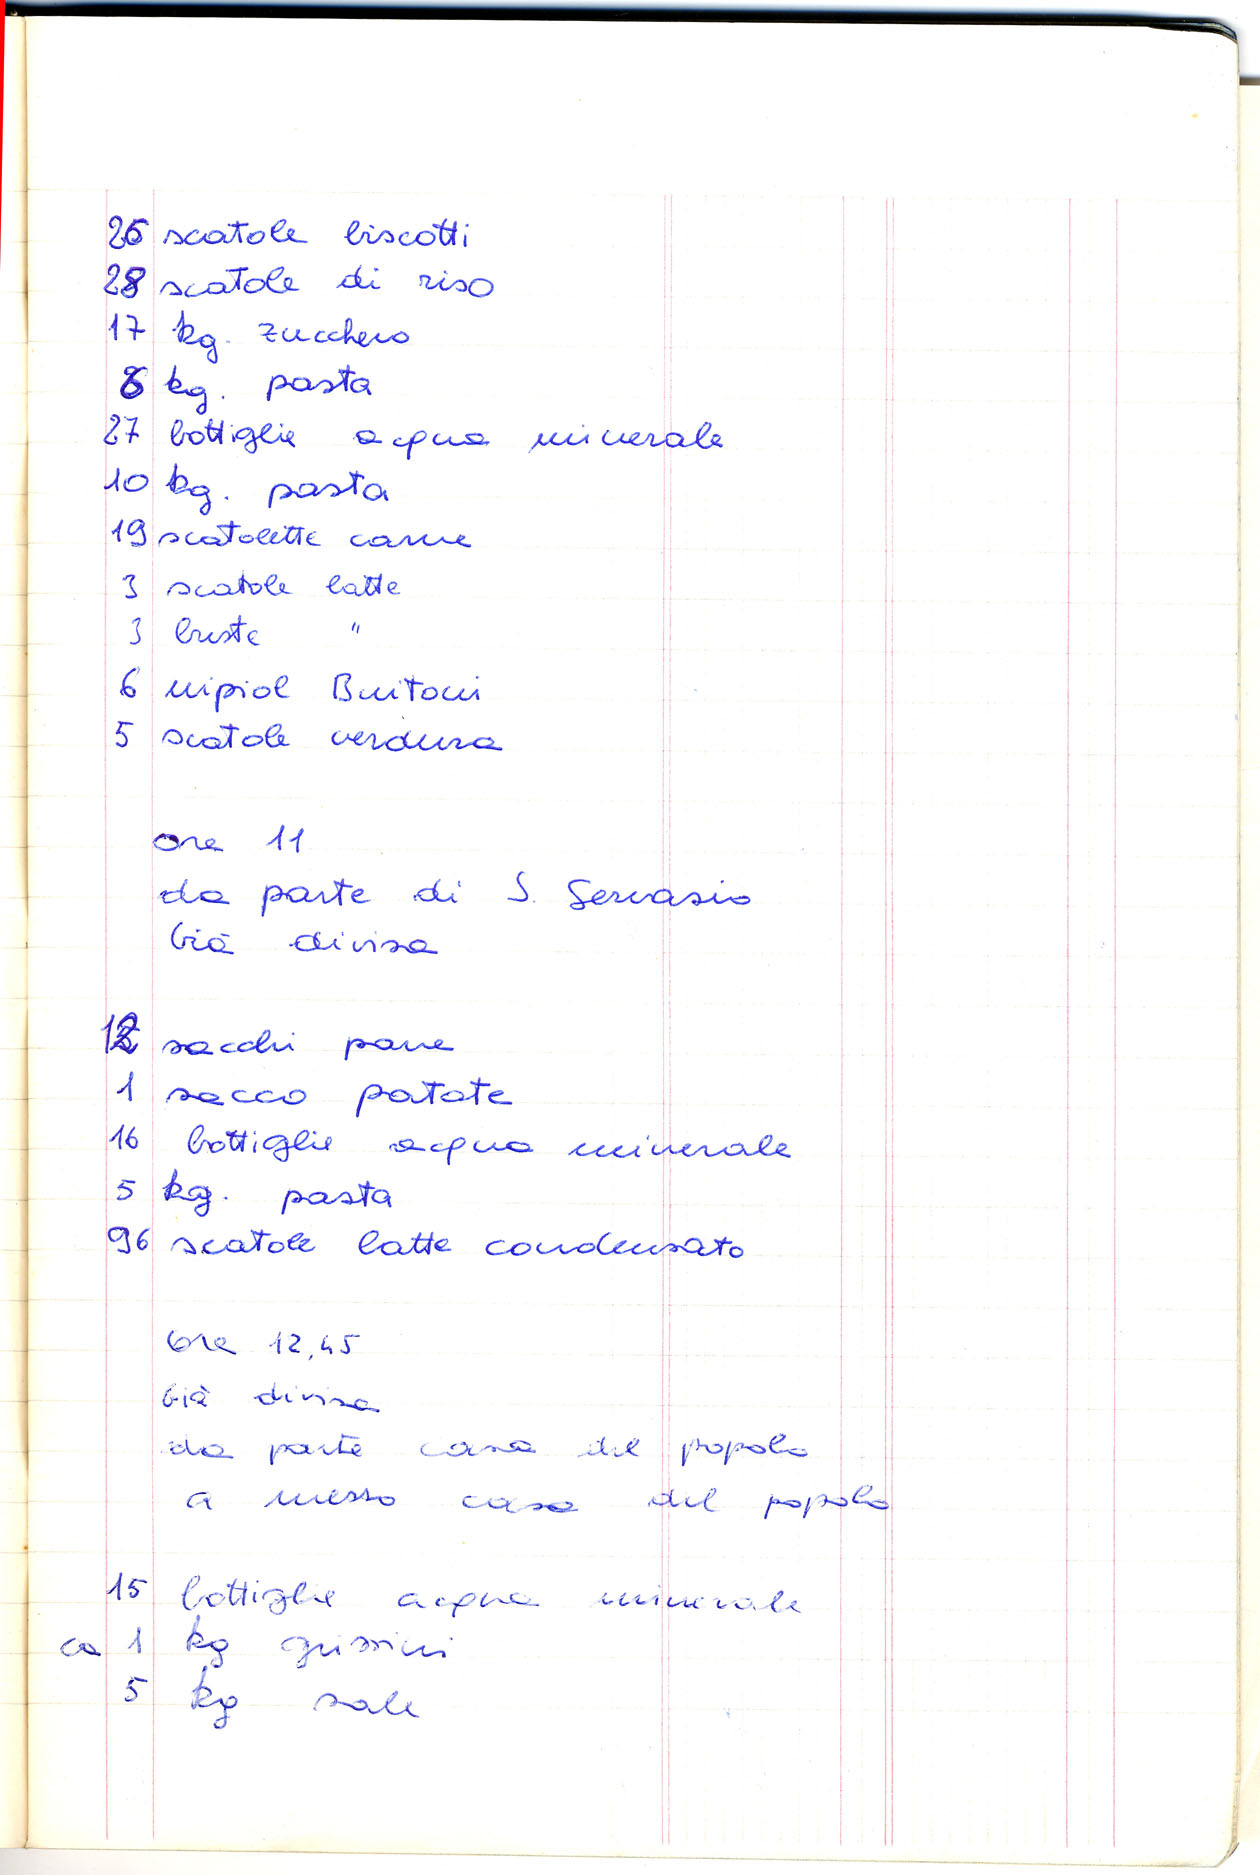 26 scatole biscotti
28 scatole di riso
17 kg. zucchero
8 kg. pasta
27 bottiglie acqua minerale
10 kg. pasta
19 scatolette carne
3 scatole latte
3 buste "
6 nipiol Buitoni
5 scatole verdura
ore 11
da parte di S. Gervasio
Già divisa
12 sacchi pane
1 sacco patate
16 bottiglie acqua minerale
5 kg. pasta
96 scatole latte condensato
Ore 12,45
Già divisa
da parte casa del popolo
a mezzo casa del popolo
15 bottiglie acqua minerale
ca 1 kg grissini
5 kg sale